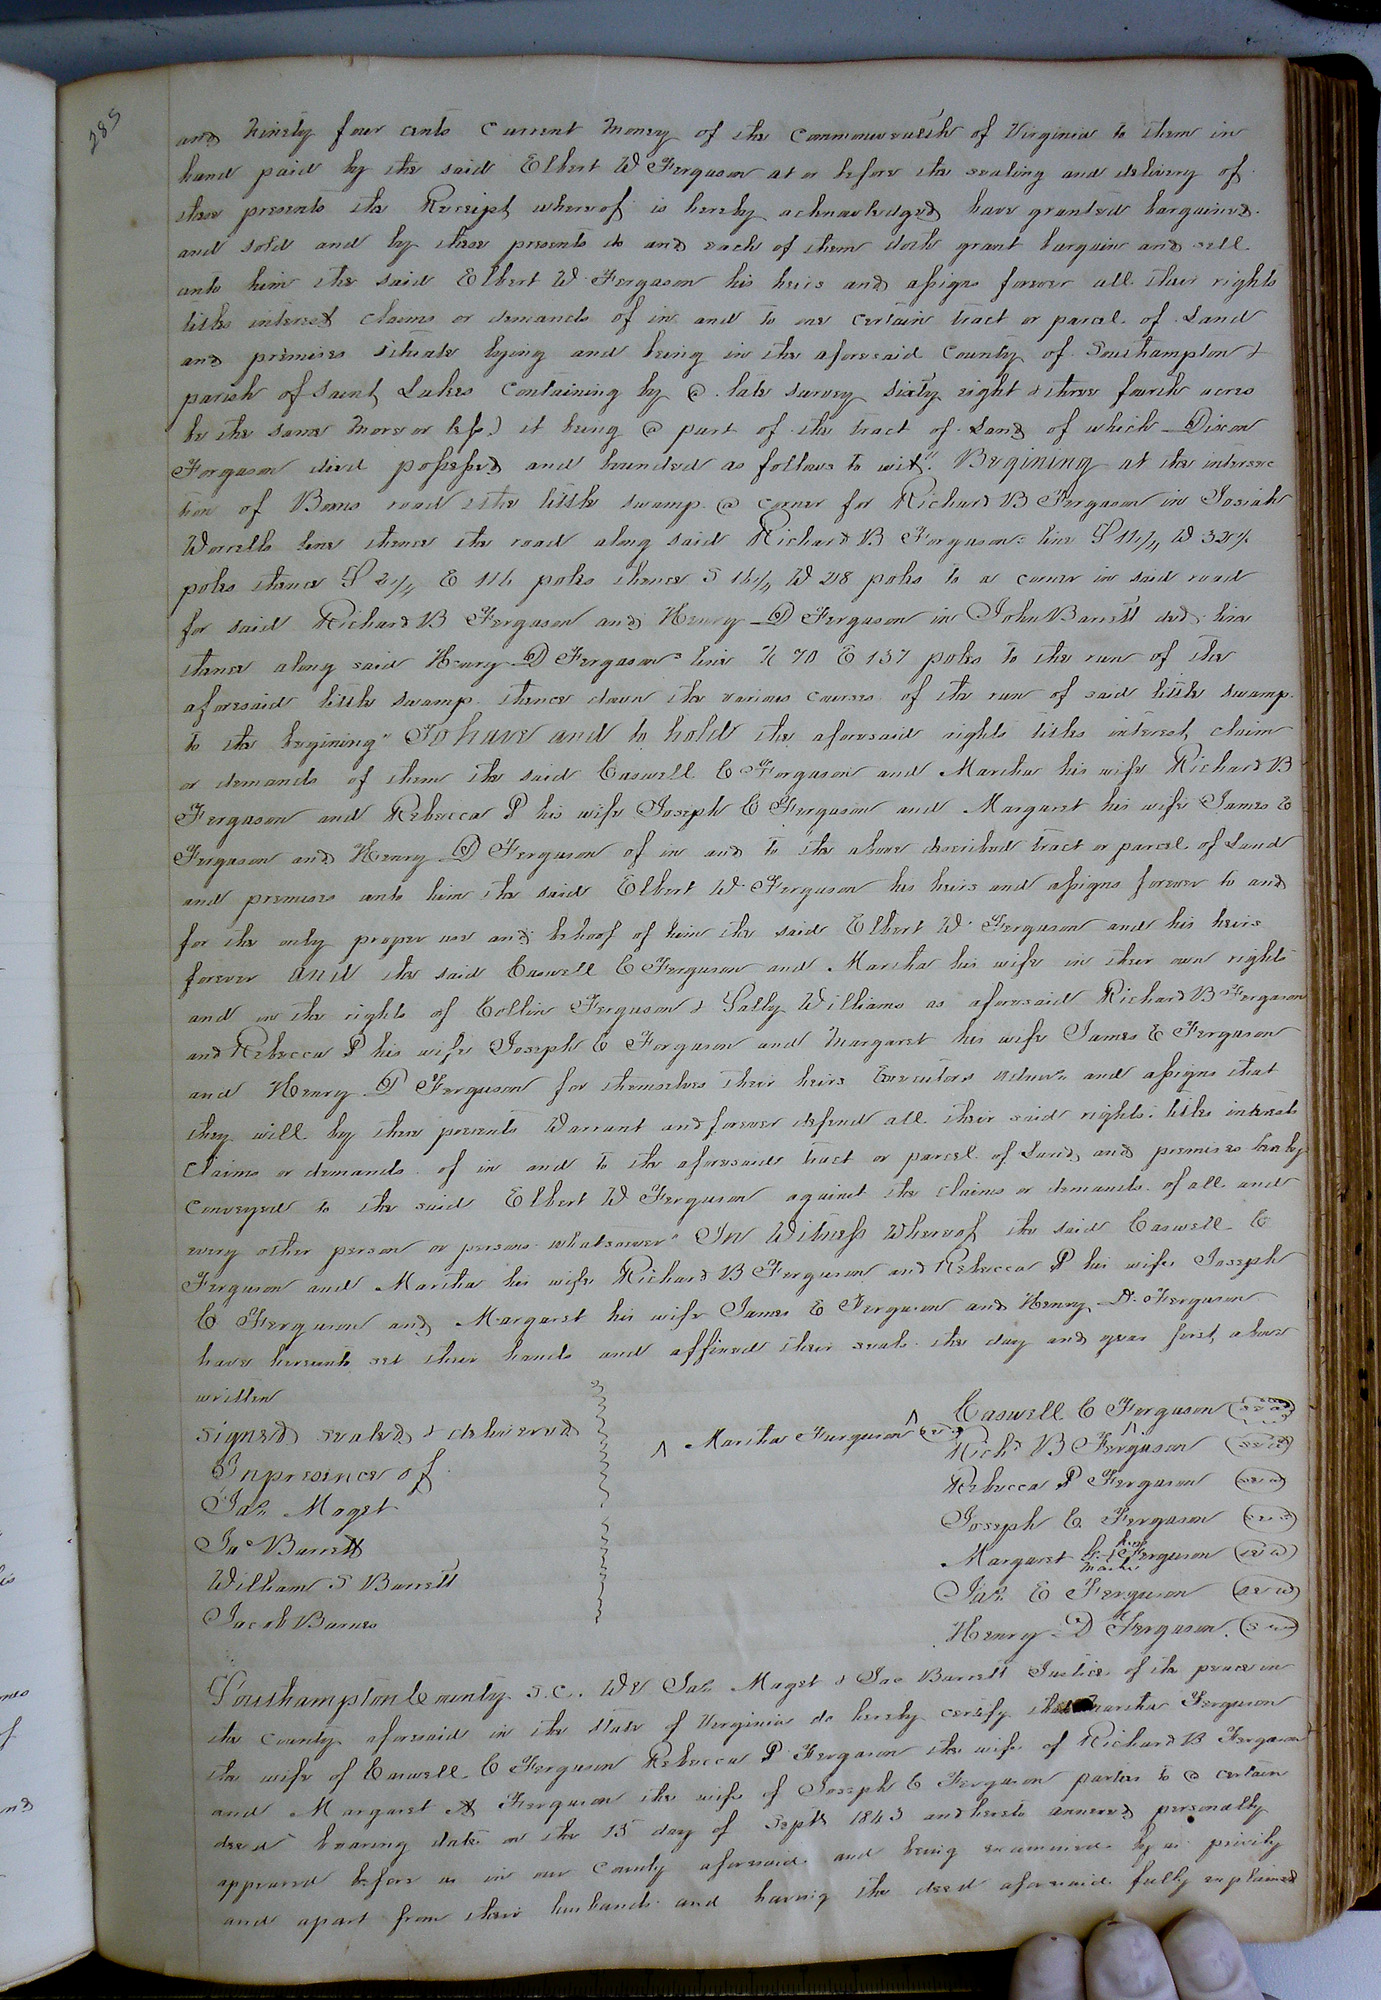 285
and Ninety four cents Current Money of the Commonwealth of Virginia to them in
hand paid by the said Elbert W Ferguson at or before the sealing and delivery of
these presents the Receipt whereof is hereby acknowledged have granted bargained
and sold and by these presents do and each of them doth grant bargain and sell
unto him the said Elbert W Ferguson his heirs and assigns forever all their rights
titles interest claims or demands of in and to one certain tract or parcel of Land
and premises situate lying and being in the aforesaid County of Southampton &
parish of Saint Lukes Containing by a late survey sixty eight & three fourth acres
be the same more or less) it being a part of the tract of Land of which Dixon
Ferguson died possessed and bounded as follows to wit" Begining at the intersec
tion of Beans road & the little swamp a corner for Richard B Ferguson in Josiah
Worrells line thence the road along said Richard B Fergusons line S 11¼ W 32½
poles thence S 2¼ E 116 poles thence S 16¼ W 218 poles to a corner in said road
for said Richard B Ferguson and Henry D Ferguson in John Barrett ded. line
thence along said Henry D Fergusons line N 70 E 137 poles to the run of the
aforesaid little swamp thence down the various courses of the run of said little swamp
to the begining" To have and to hold the aforesaid rights titles interest claim
or demands of them the said Caswell C Ferguson and Martha his wife Richard B
Ferguson and Rebecca P his wife Joseph C Ferguson and Margaret his wife James E
Ferguson and Henry D Ferguson of in and to the above described tract or parcel of Land
and premises unto him the said Elbert W Ferguson his heirs and assigns forever to and
for the only proper use and behoof of him the said Elbert W Ferguson and his heirs
forever And the said Caswell C Ferguson and Martha his wife in their own rights
and in the rights of Collin Ferguson & Sally Williams as aforesaid Richard B Ferguson
and Rebecca P his wife Joseph C Ferguson and Margaret his wife James E Ferguson
and Henry D Ferguson for themselves their heirs Executors Admrs and assigns that
they will by these presents Warrant and forever defend all their said rights titles interests
claims or demands of in and to the aforesaid tract or parcel of Land and premises hereby
conveyed to the said Elbert W Ferguson against the claims or demands of all and
every other person or persons whatsoever" In Witness Whereof the said Caswell C
Ferguson and Martha his wife Richard B Ferguson and Rebecca P his wife Joseph
C Ferguson and Margaret his wife James E Ferguson and Henry D. Ferguson
have hereunto set their hands and affixed their seals the day and year first above
written
Caswell C Ferguson (seal)
signed sealed & delivered
^ Martha Ferguson (seal) ^
Richd B Ferguson (seal)
In presence of
Rebecca P Ferguson (seal)
Jas. Maget
Joseph C. Ferguson (seal)
Jno Barrett
Margaret her mark Ferguson (seal)
William S Barrett
Jas. E Ferguson (seal)
Jacob Barnes
Henry D Ferguson (seal)
Southampton County S.C. We Jas. Maget & Jno Barrett Justice of the peace in
the County aforesaid in the state of Virginia do hereby certify that Martha Ferguson
the wife of Caswell C Ferguson Rebecca P Ferguson the wife of Richard B Ferguson
and Margaret Ferguson the wife of Joseph C Ferguson parties to a certain
deed bearing date on the 15 day of Septr 1843 and hereto annexed personally
appeared before us in our County aforesaid and being examined by us privily
and apart from their husbands and having the deed aforesaid fully explained